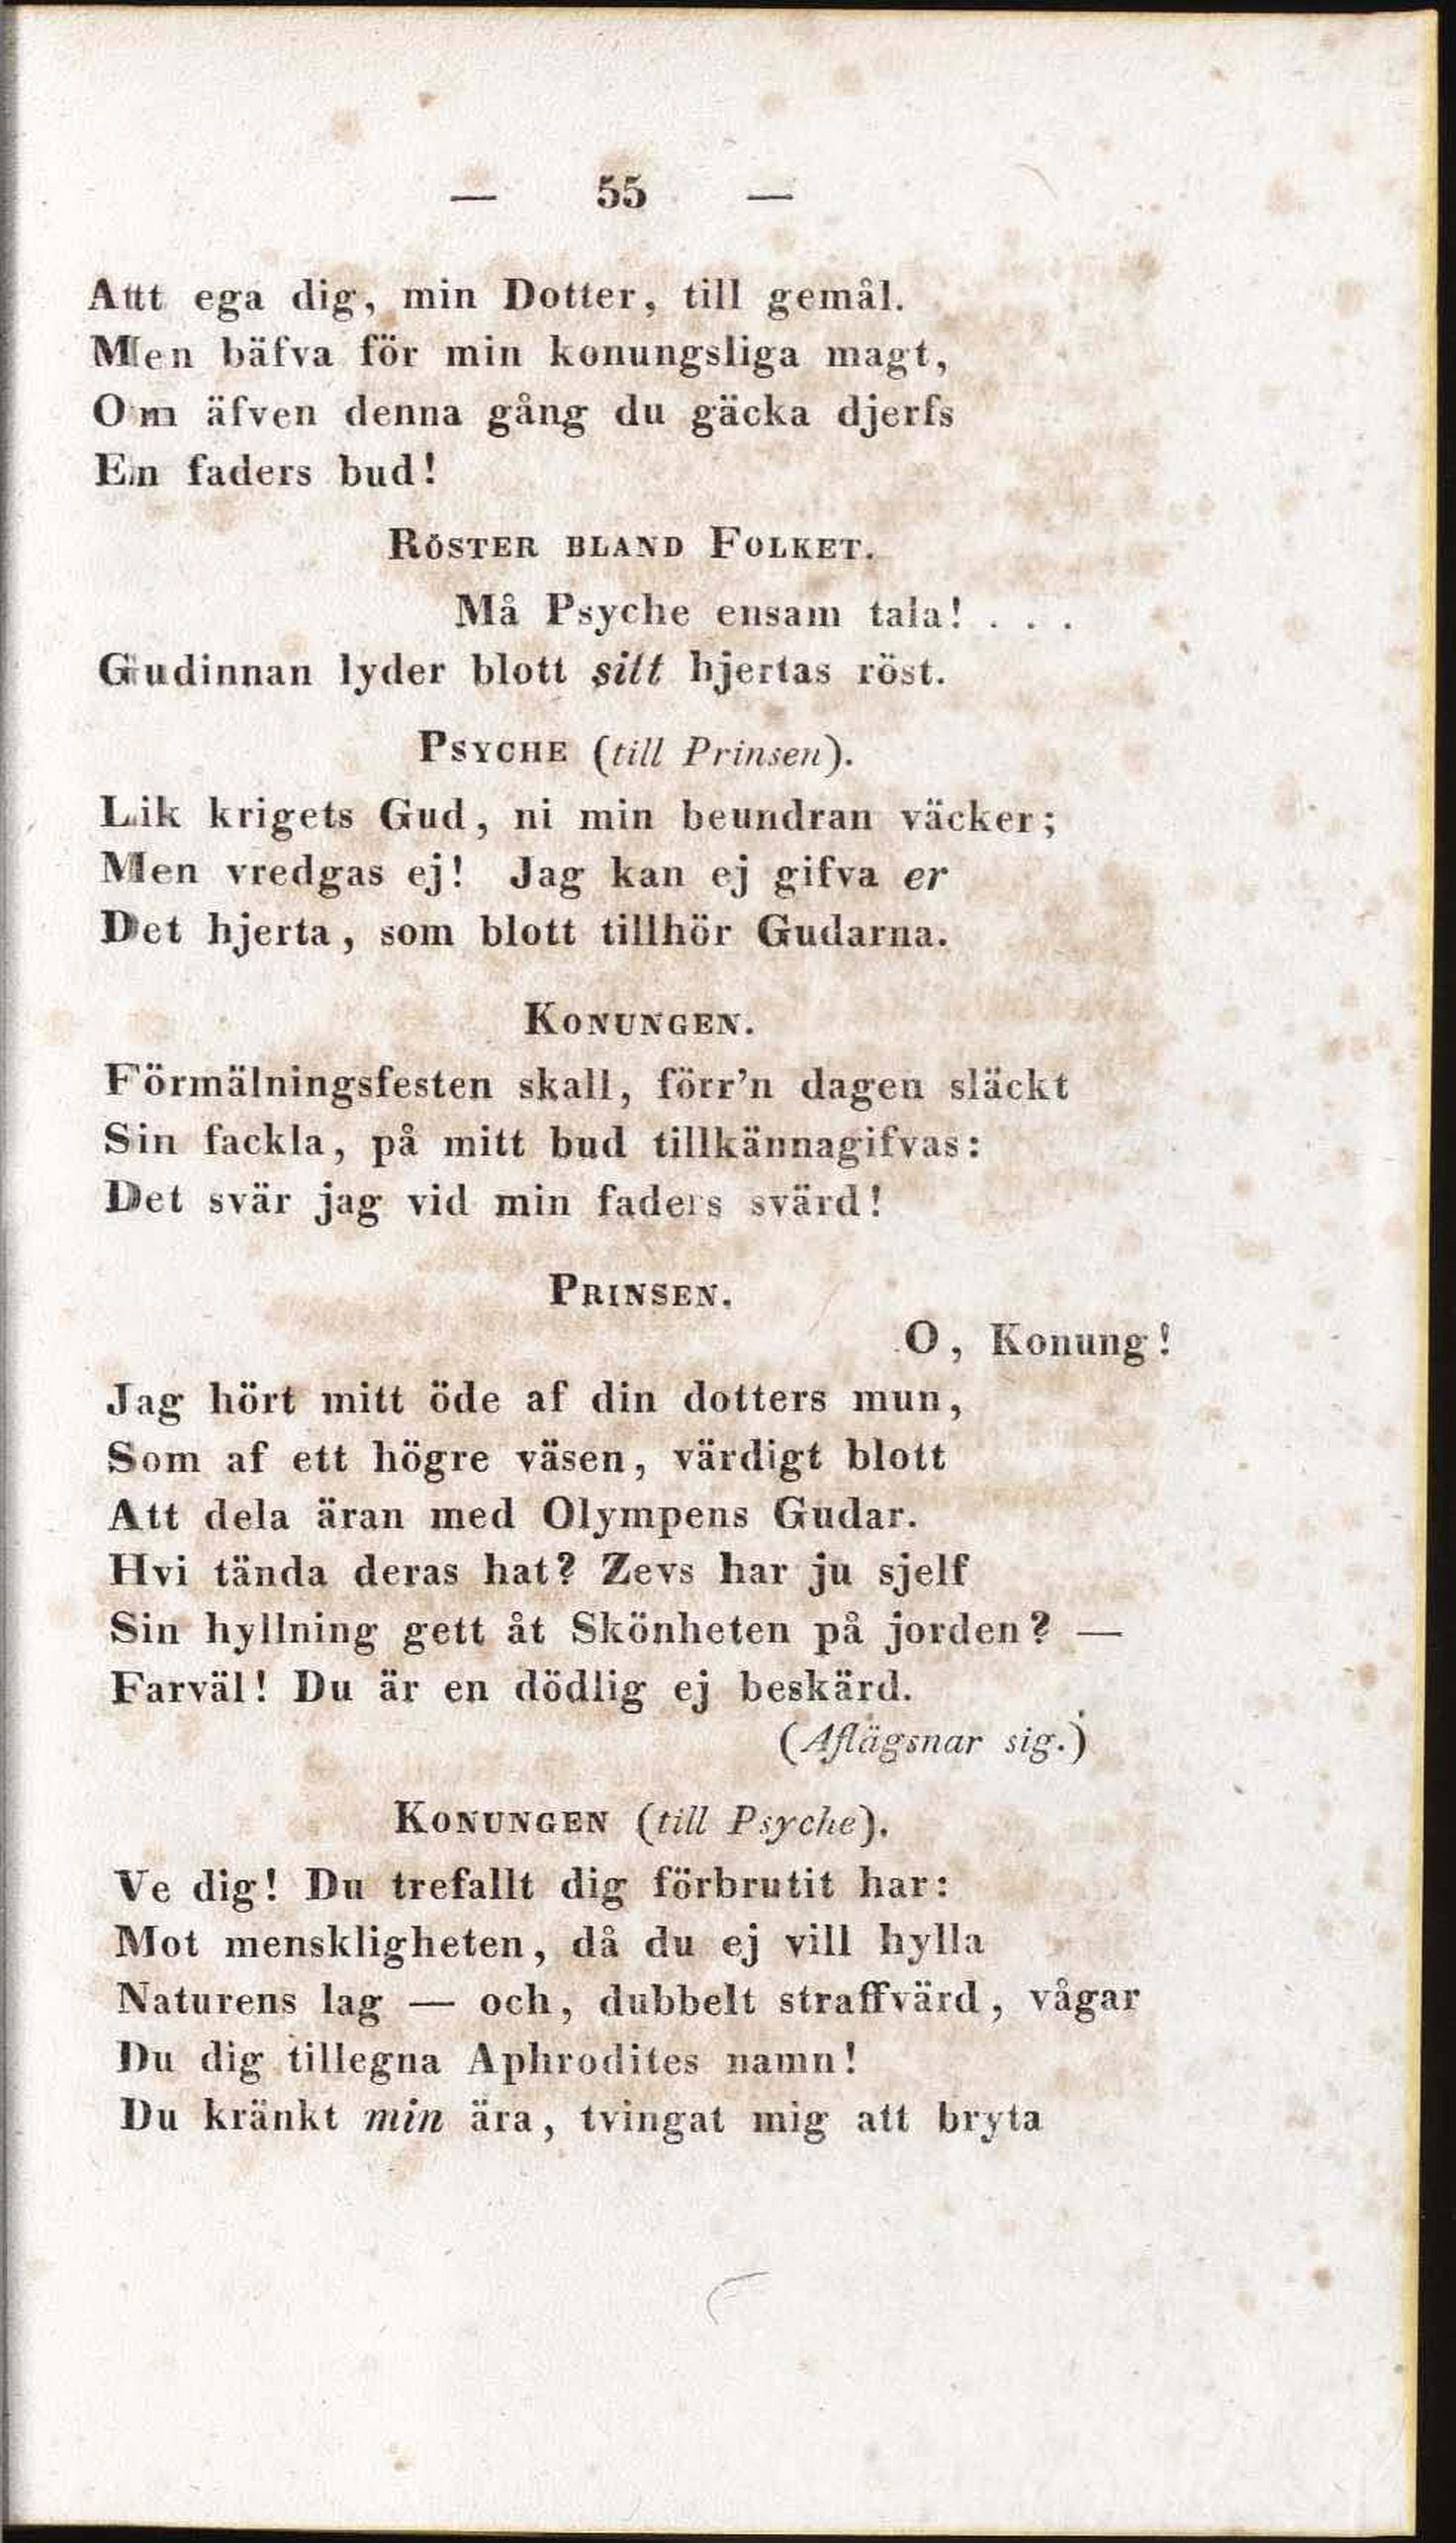 — 55 —
Att ega dig, min Dotter, till gemål.
Men bäfva för min konungsliga magt,
Om äfven denna gång du gäcka djerfs
En faders bud!
RÖSTER BLAND FOLKET.
Må Psyche ensam tala! . . .
Gudinnan lyder blott sitt hjertas röst.
PSYCHE (till Prinsen).
Lik krigets Gud, ni min beundran väcker;
Men vredgas ej! Jag kan ej gifva er
Det hjerta, som blott tillhör Gudarna.
KONUNGEN.
Förmälningsfesten skall, förr'n dagen släckt
Sin fackla, på mitt bud tillkännagifvas:
Det svär jag vid min faders svärd!
PRINSEN.
O, Konung!
Jag hört mitt öde af din dotters mun,
Som af ett högre väsen, värdigt blott
Att dela äran med Olympens Gudar.
Hvi tända deras hat? Zevs har ju sjelf
Sin hyllning gett åt Skönheten på jorden? —
Farväl! Du är en dödlig ej beskärd.
(Aflägsnar sig.)
KONUNGEN (till Psyche).
Ve dig! Du trefallt dig förbrutit har:
Mot menskligheten, då du ej vill hylla
Naturens lag — och, dubbelt straffvärd, vågar
Du dig tillegna Aphrodites namn!
Du kränkt min ära, tvingat mig att bryta